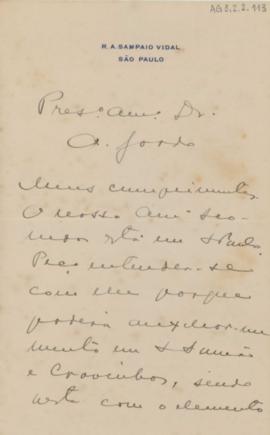 AG 8.2.2.113
R. A. SAMPAIO VIDAL
SÃO PAULO
Pres.º am.º Dr.
A. Gordo
Meus cumprimentos
O nosso am.º
está em S. Paulo
Peço entender-se
com elle porque
poderá auxiliar-
em S. Simão
e Cravinhos, sendo
com o elemento